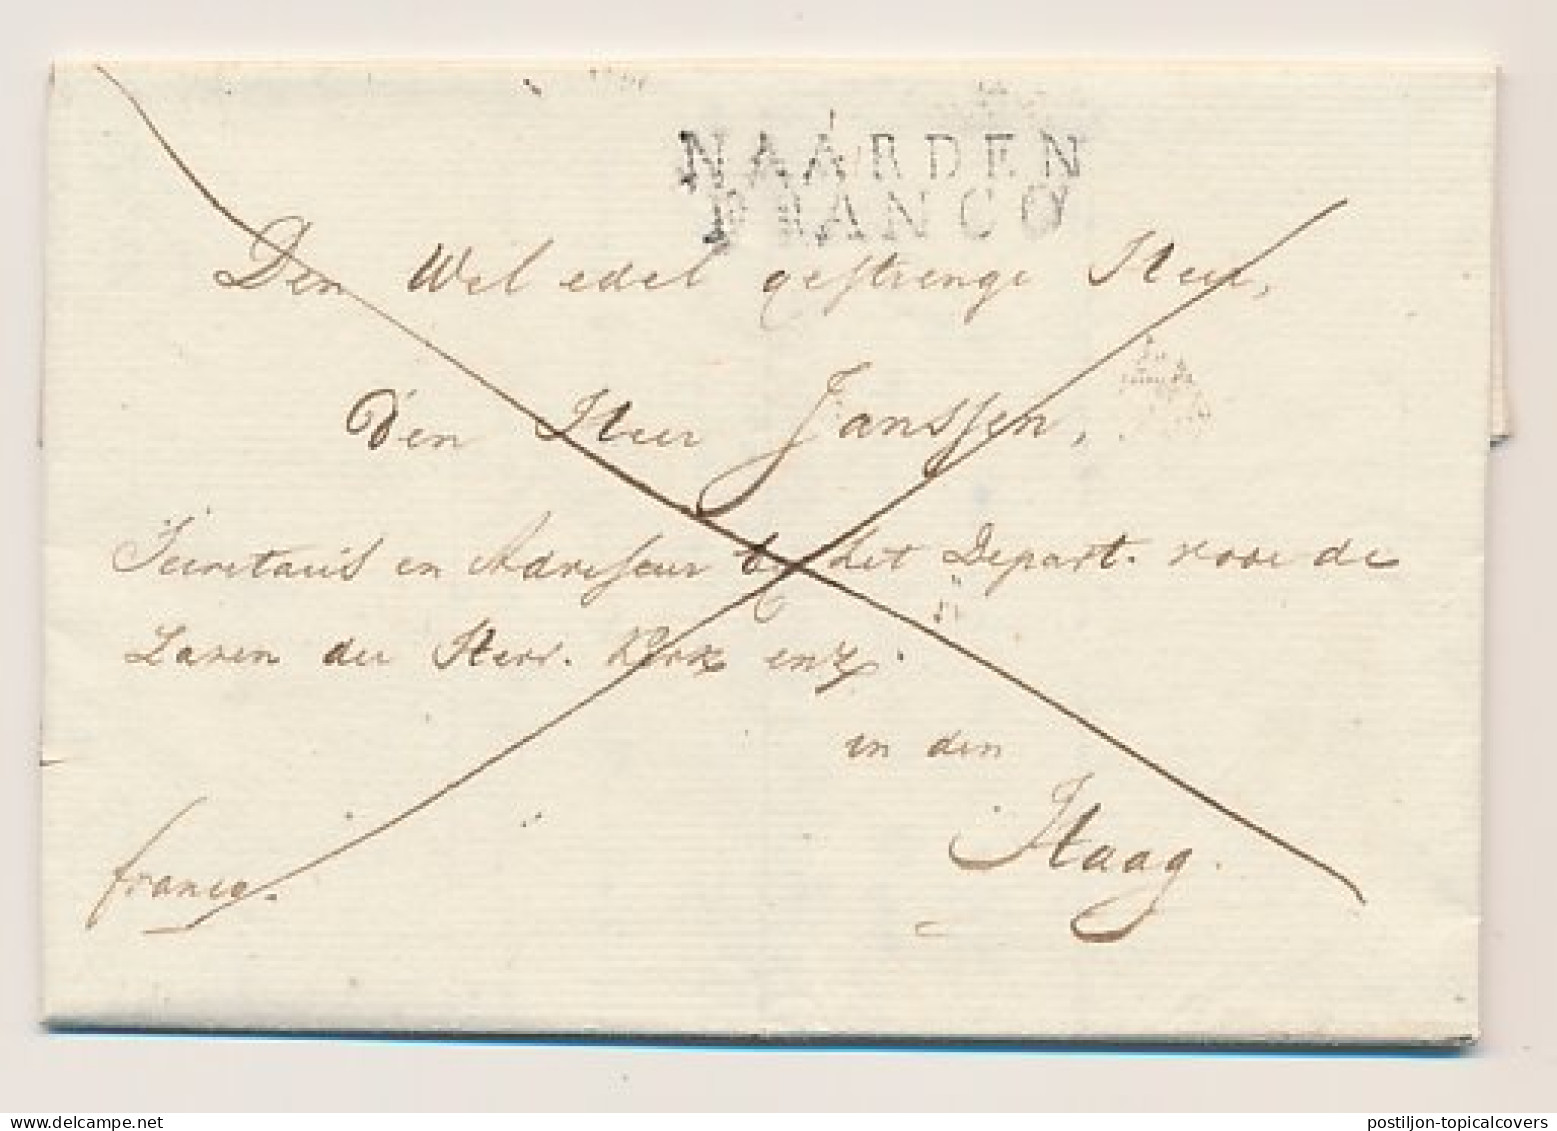 NAARDEN
FRANCO
Den Wel edel gestrenge Heer,
Den Heer Janssen,
Secretaris en Adviseur by het Depart. voor de
Zaken der Herv. Kerk enz.
in den
Haag.
franco.
delcampe.net
postiljon-topicalcovers